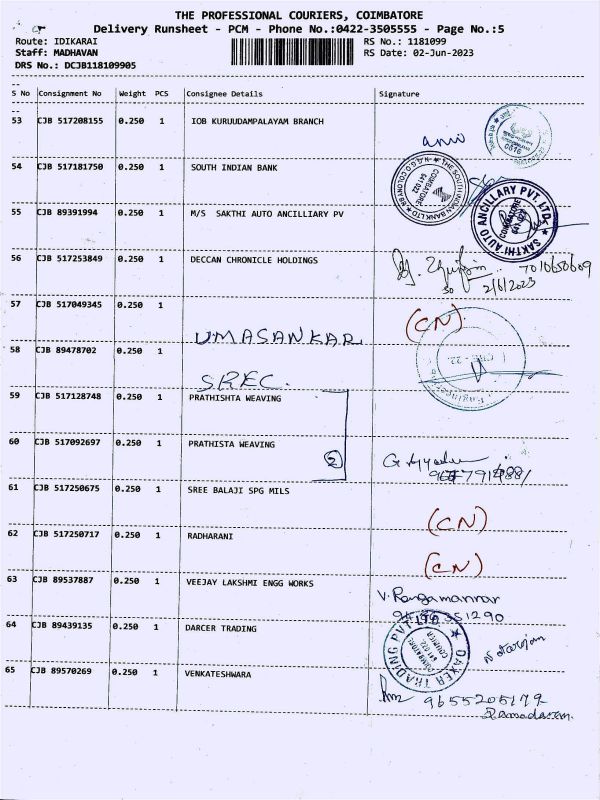 THE PROFESSIONAL COURIERS, COIMBATORE
Delivery Runsheet - PCM - Phone No.:0422-3505555 - Page No.:5
Route: IDIKARAI RS No.: 1181099
Staff: MADHAVAN RS Date: 02-Jun-2023
DRS No.: DCJB118109905
S No Consignment No Weight PCS Consignee Details Signature
53 CJB 517208155 0.250 1 IOB KURUUDAMPALAYAM BRANCH
54 CJB 517181750 0.250 1 SOUTH INDIAN BANK
THE SOUTH INDIAN BANK LTD
COIMBATORE
641 022
55 CJB 89391994 0.250 1 M/S SAKTHI AUTO ANCILLIARY PV
SAKTHI AUTO ANCILLARY PVT. LTD.
COIMBATORE
56 CJB 517253849 0.250 1 DECCAN CHRONICLE HOLDINGS
2/6/2023
57 CJB 517049345 0.250 1 (CN)
UMASANKAR
58 CJB 89478702 0.250 1
SREC.
59 CJB 517128748 0.250 1 PRATHISHTA WEAVING
60 CJB 517092697 0.250 1 PRATHISTA WEAVING
2
61 CJB 517250675 0.250 1 SREE BALAJI SPG MILS
(CN)
62 CJB 517250717 0.250 1 RADHARANI
(CN)
63 CJB 89537887 0.250 1 VEEJAY LAKSHMI ENGG WORKS
V. Rangamannar
64 CJB 89439135 0.250 1 DARCER TRADING
DAXER TRADING PVT LTD
COIMBATORE
641 022.
65 CJB 89570269 0.250 1 VENKATESHWARA
9655205179
Ramadasan.